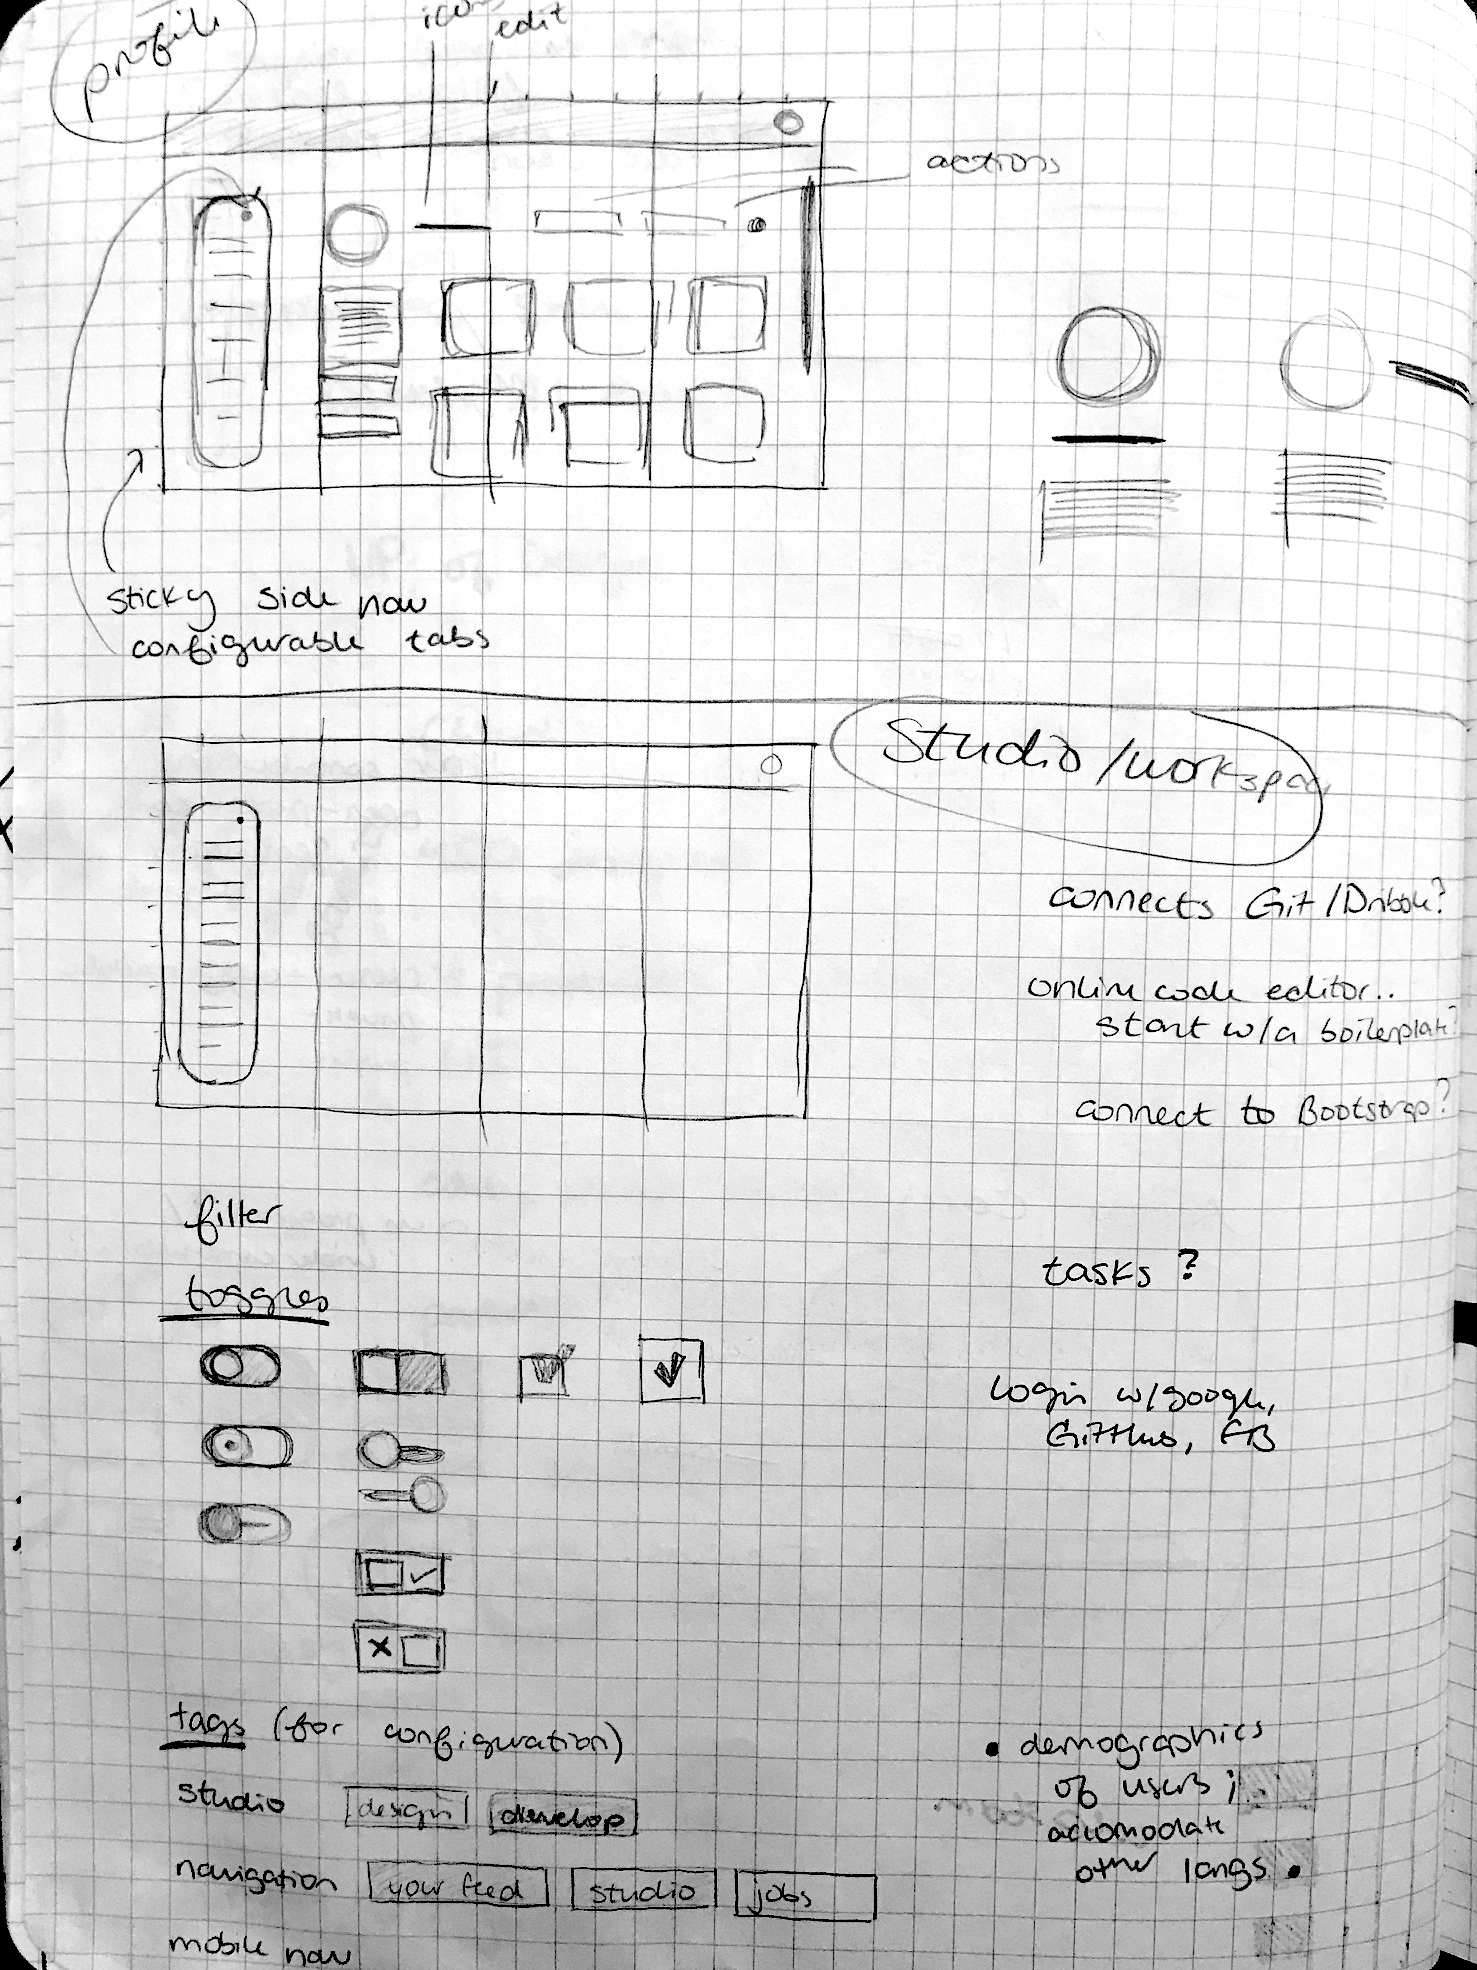 profile
icon
edit
actions
sticky side nav
configurable tabs
Studio/workspace
connects Git/Dribble?
online code editor..
start w/a boilerplate?
connect to Bootstrap?
filter
toggles
tasks?
login w/google,
GitHub, FB
tags (for configuration)
studio design develop
navigation your feed studio jobs
mobile nav
• demographics
of users;
accomodate
other langs •